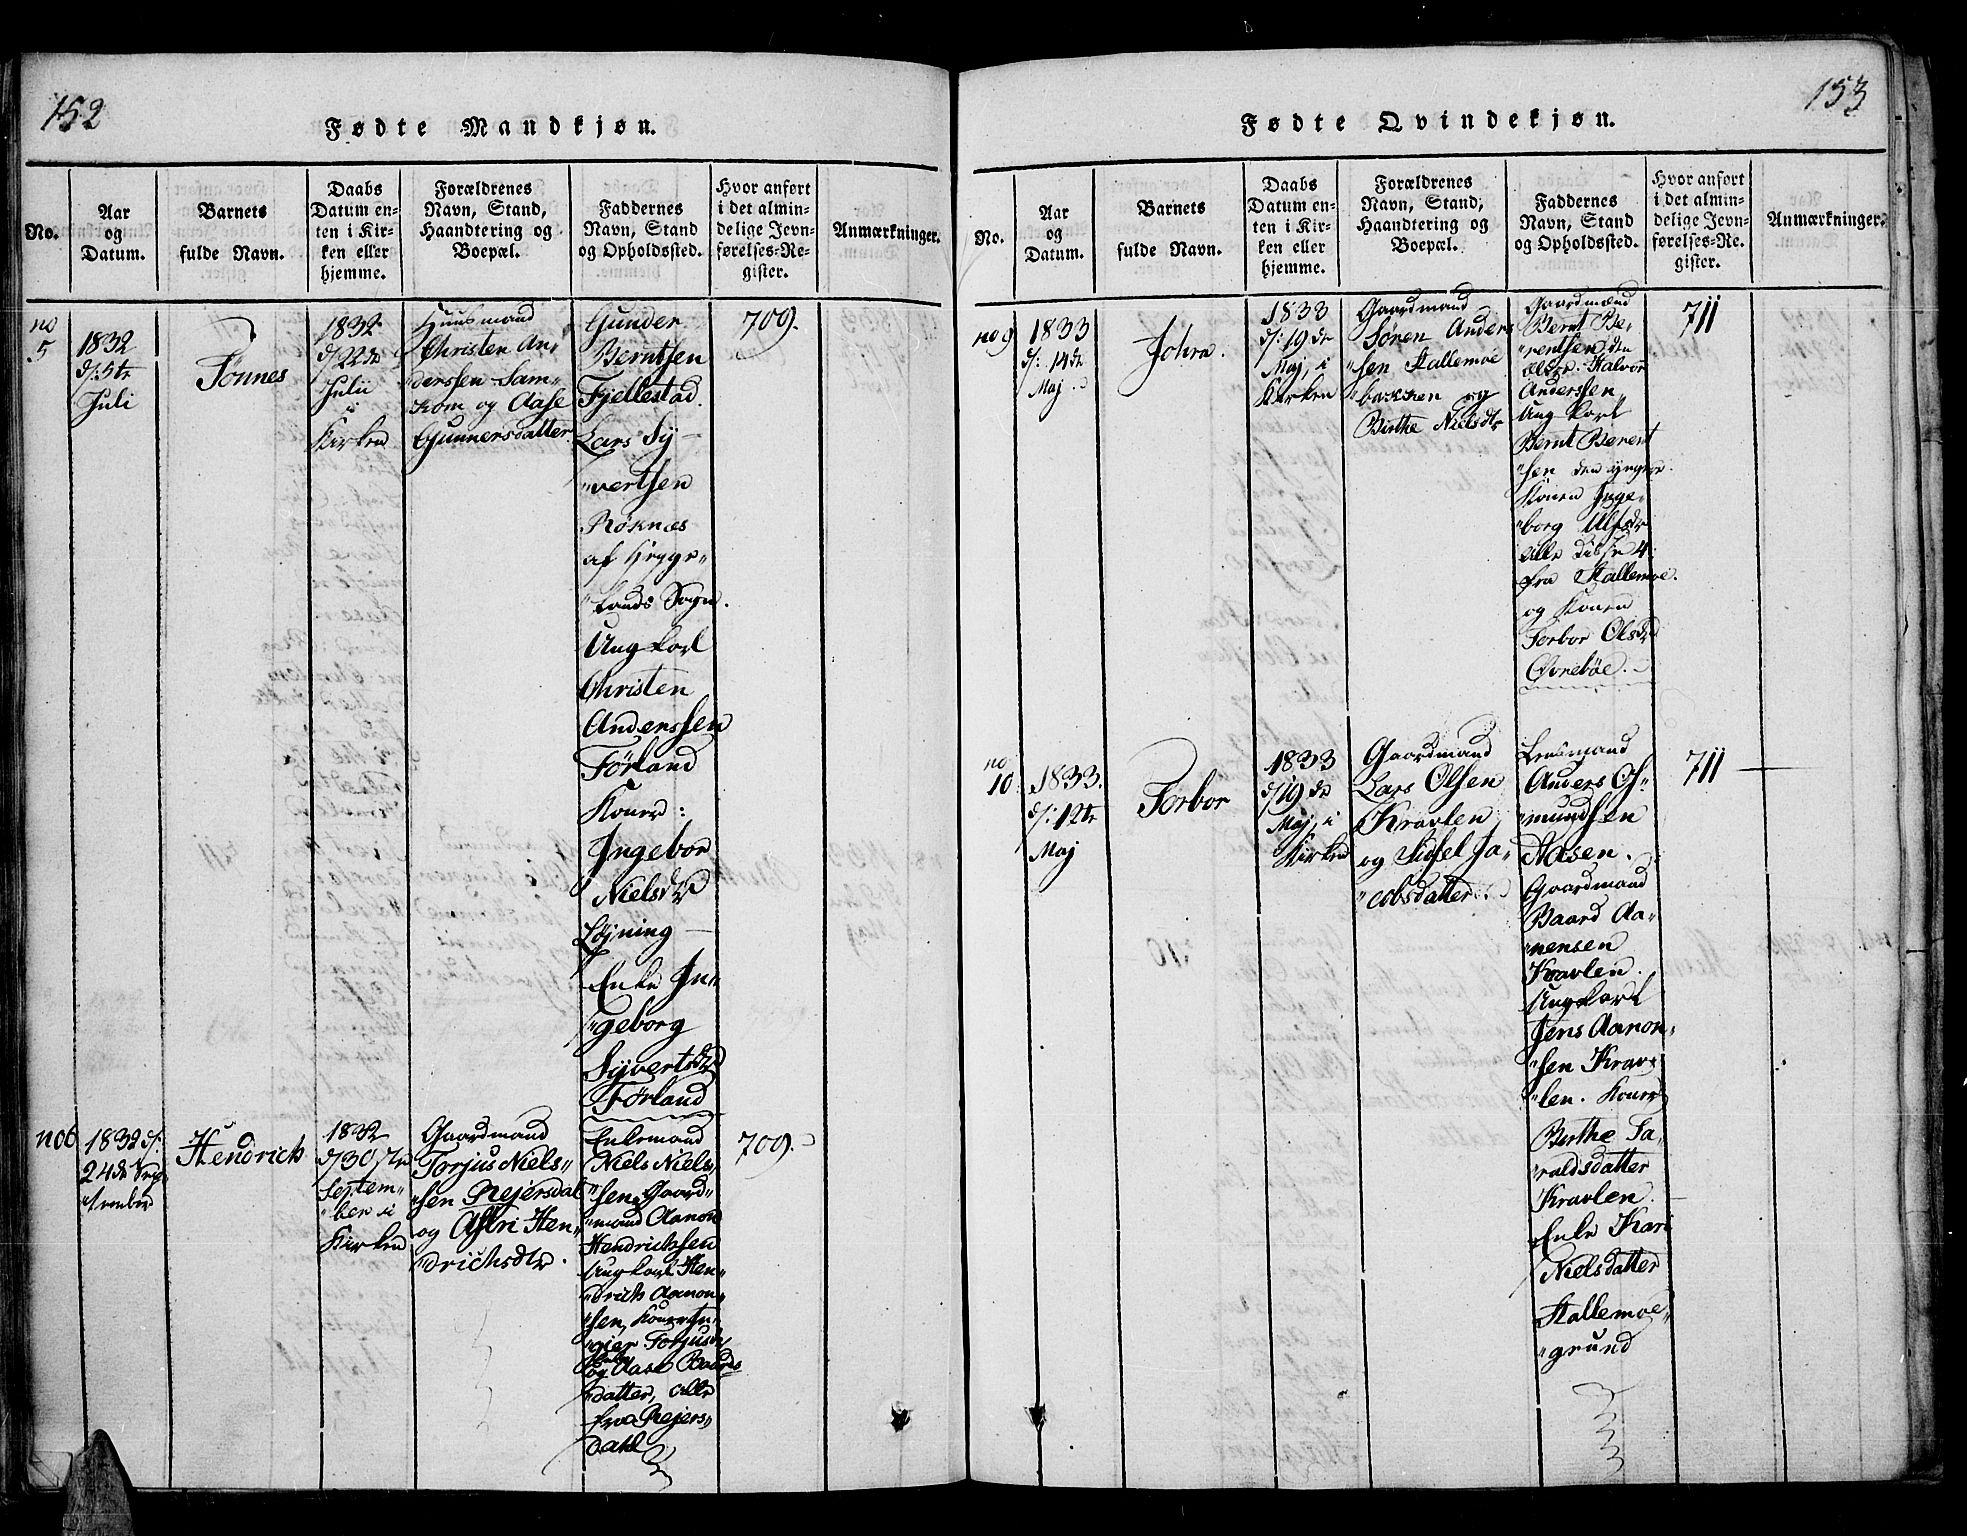 152
Fødte Mandkjøn.
No.
Aar
og
Datum.
Barnets
fulde Navn.
Daabs
Datum en-
ten i Kir-
ken eller
hjemme.
Forældrenes
Navn, Stand,
Haandtering og
Boepæl.
Faddernes
Navn, Stand
og Opholdssted.
Hvor anført
i det almin-
delige Jevn-
førelses-Re-
gister.
Anmærkninger.
no
5
1832
d: 5te
Juli
Tønnes
1832
d/22de
Julii
Kirken
Huusmand
Christen An-
derssen Sam-
kom og Aase
Gunnersdatter
Gunder
Berntsen
Fjellestad.
Lars Sy-
"vertsen
Røknæs
af
"lands Sogn.
Ungkarl
Christen
Anderssen
Førland
Koner:
Ingebor
Nielsdtr
Løjning
Enke In-
"geborg
Syvertsdtr
Førland
709.
no 6
1832 d:
24de Sep-
"tember
Hendrich
1832
d/30 te
Septem-
"ber i
Kirken
Gaardmand
Torjus Niels-
"sen Rejersdal
og Astri Hen-
"drichsdtr.
Enkemand
Niels Niels-
"sen, Gaard-
"mand Aanon
Hendrichsen
Ungkarl Hen-
"drich Aanon-
"sen, Koner In-
"gier Torjusdtr
og Aase Baards
"datter, alle
fra Rejers-
dahl
709.
153
Fødte Qvindekjøn.
No.
Aar
og
Datum.
Barnets
fulde Navn.
Daabs
Datum en-
ten i Kir-
ken eller
hjemme.
Forældrenes
Navn, Stand,
Haandtering og
Boepæl.
Faddernes
Navn, Stand
og Opholdssted.
Hvor anført
i det almin-
delige Jevn-
førelses-Re-
gister.
Anmærkninger.
no 9
1833
d: 14de
Maj.
Johra.
1833
d: 19de
Maj, i
Kirken
Gaardmand
Søren Anders
"sen Stallemoe
"bakken og
Birthe Nielsdtr
Gaardmænd
Bernt Be-
"rentsen den
ældre. Halvor
Anderssen,
Ungkarl
Bernt Berent
"sen den yngre.
Konen Inge-
"borg Ulfsdtr
alle disse 4
fra Stallemoe.
og Konen
Torbor Olsdtr
Øvrebøe.
711
no
10
1833.
d: 12te
Maj
Torbor
1833
d/19de
Maj, i
Kirken
Gaardmand
Lars Olsen
Kravlen
og Sidsel Ja-
"cobsdatter.
Lensmand
Anders Os-
"mundsen
Aasen.
Gaardmand
Baard Aa-
"nensen
Kravlen.
Ungkarl
Jens Aanon-
"sen Krav-
"len. Koner
Berthe Ta-
"raldsdatter
Kravlen.
Enke Kari
Nielsdatter
Stallemoe-
"grund
711